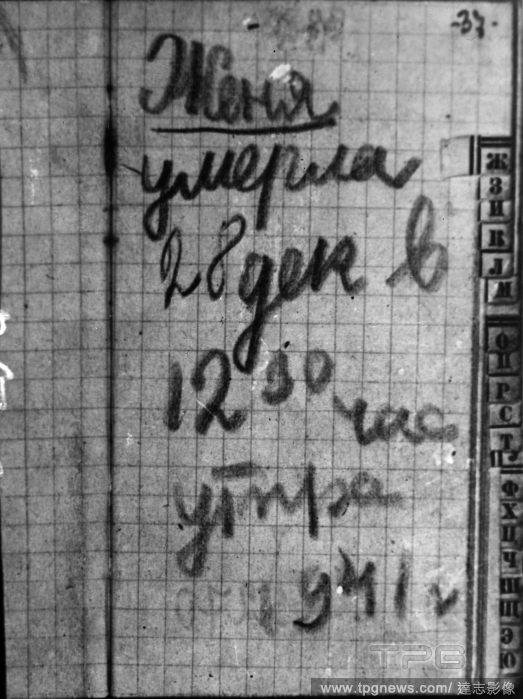 -37-
Женя
умерла
28 дек в
12 30 час
утра
1941 г
Ж
З
И
К
Л
М
О
П
Р
С
Т
Ф
Х
Ц
Ч
Ш
Щ
Э
Ю
TPG
www.tpgnews.com/達志影像